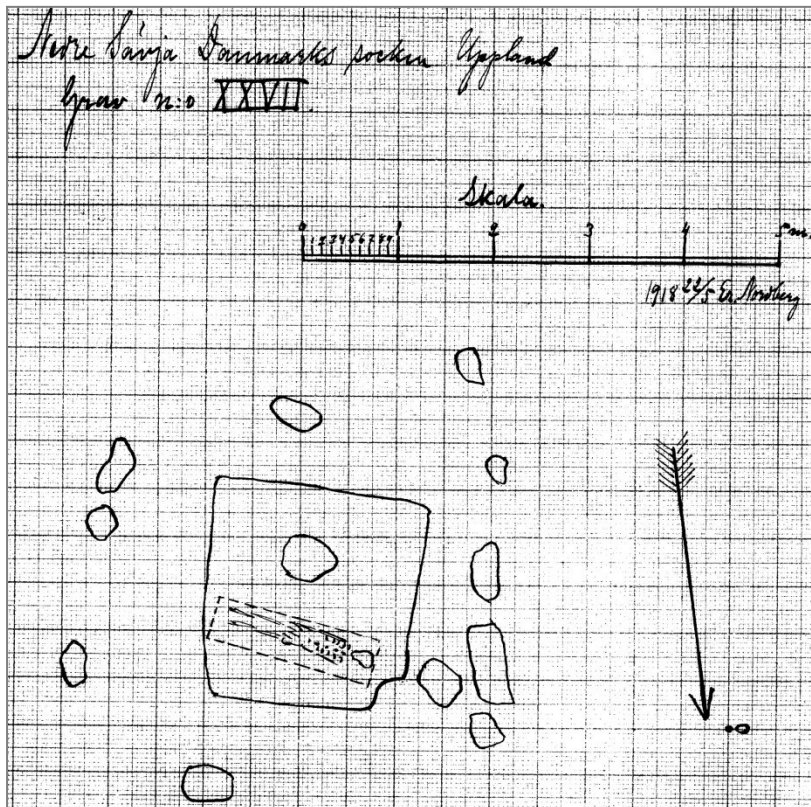 Nedre Sävja Danmarks socken Uppland
Grav n:o XXVII.
Skala.
0 1 2 3 4 5 6 7 8 9 1 2 3 4 5 m.
1918 22/5 Er. Nordberg